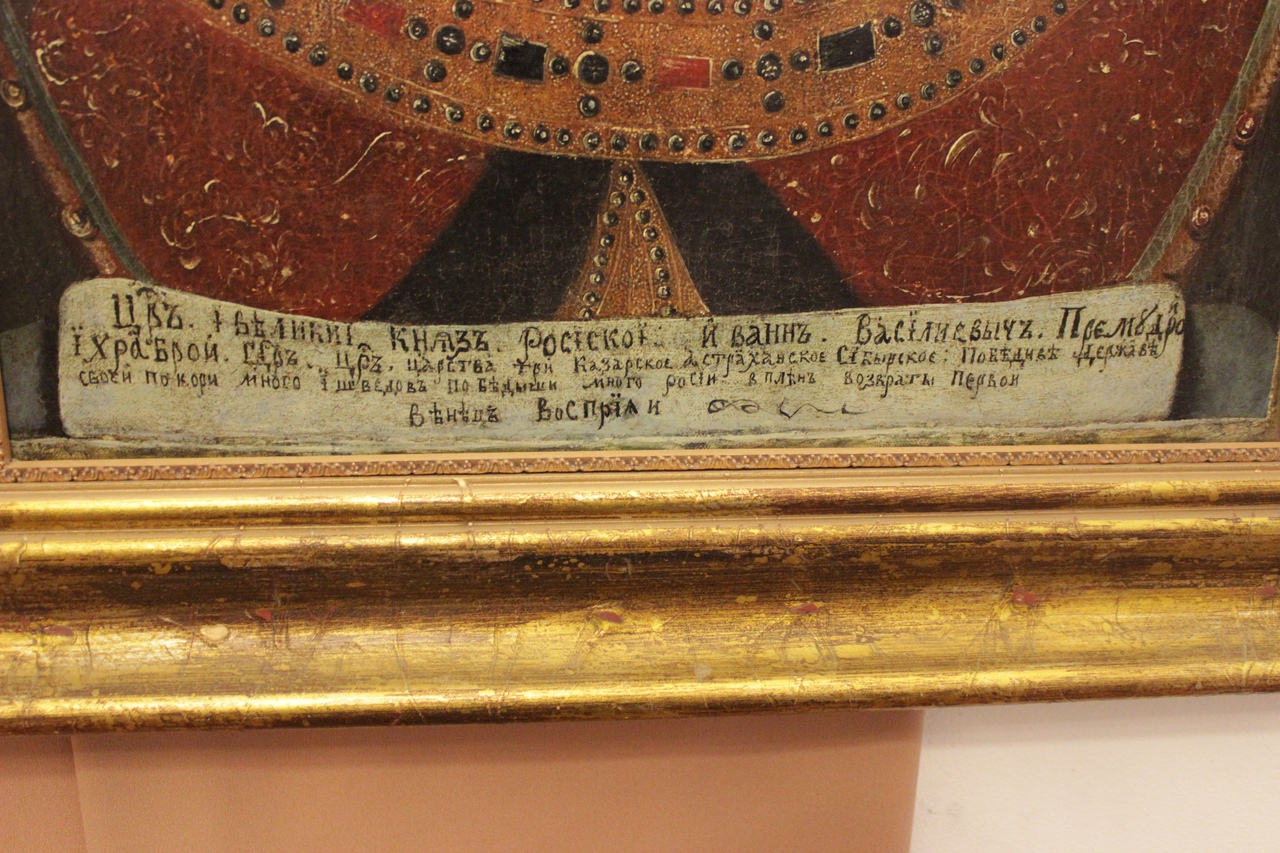 Црь. і вѣликиі князь. Росїской. Иванн. Васїлиевычъ. Премудро
їхраброй. Црь. царства три Казарское астраханское Сїбырское: Повѣдивѣ державѣ
своей покори много їшведовъ побѣдыши много росїи вплѣнъ возвраты Первои
вѣнѣцъ воспрїяли